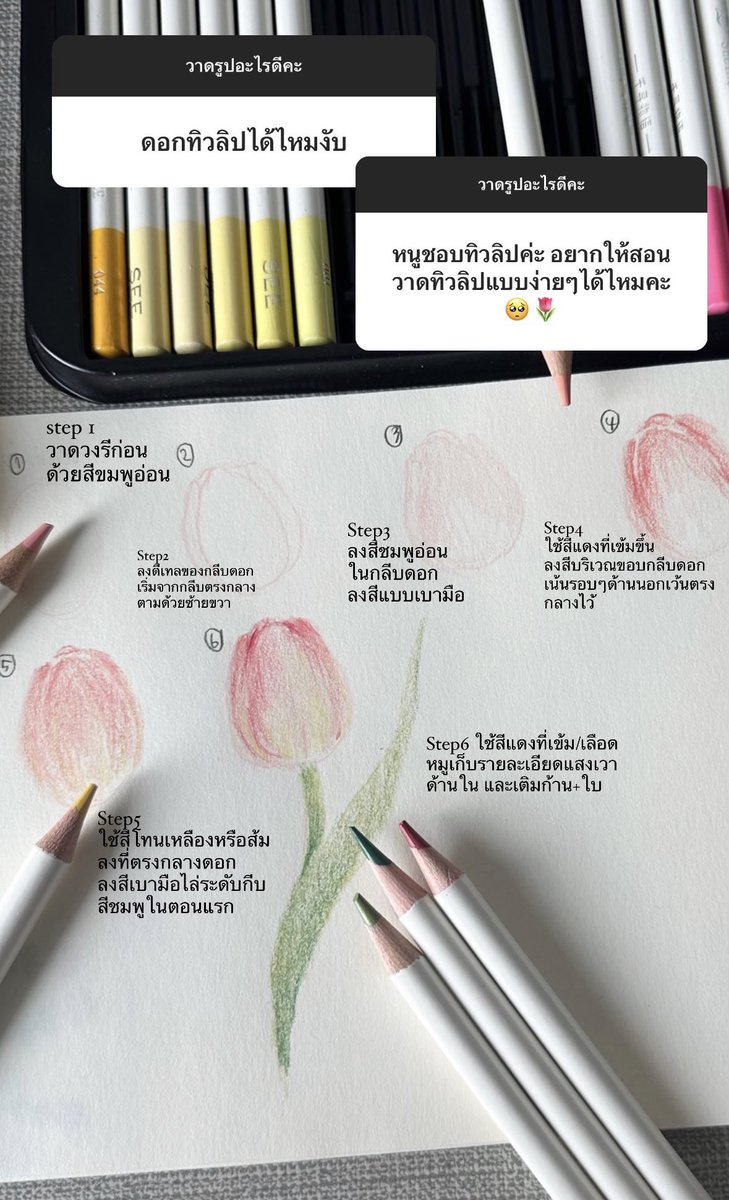 วาดรูปอะไรดีคะ
ดอกทิวลิปได้ไหมงับ
วาดรูปอะไรดีคะ
หนูชอบทิวลิปค่ะ อยากให้สอน
วาดทิวลิปแบบง่ายๆได้ไหมคะ
🥺🌷
SEE
SEE
①
step 1
วาดวงรีก่อน
ด้วยสีขมพูอ่อน
②
Step2
ลงดีเทลของกลีบดอก
เริ่มจากกลีบตรงกลาง
ตามด้วยซ้ายขวา
③
Step3
ลงสีชมพูอ่อน
ในกลีบดอก
ลงสีแบบเบามือ
④
Step4
ใช้สีแดงที่เข้มขึ้น
ลงสีบริเวณขอบกลีบดอก
เน้นรอบๆด้านนอกเว้นตรง
กลางไว้
⑤
Step5
ใช้สีโทนเหลืองหรือส้ม
ลงที่ตรงกลางดอก
ลงสีเบามือไล่ระดับกีบ
สีชมพูในตอนแรก
⑥
Step6 ใช้สีแดงที่เข้ม/เลือด
หมูเก็บรายละเอียดแสงเวา
ด้านใน และเติมก้าน+ใบ